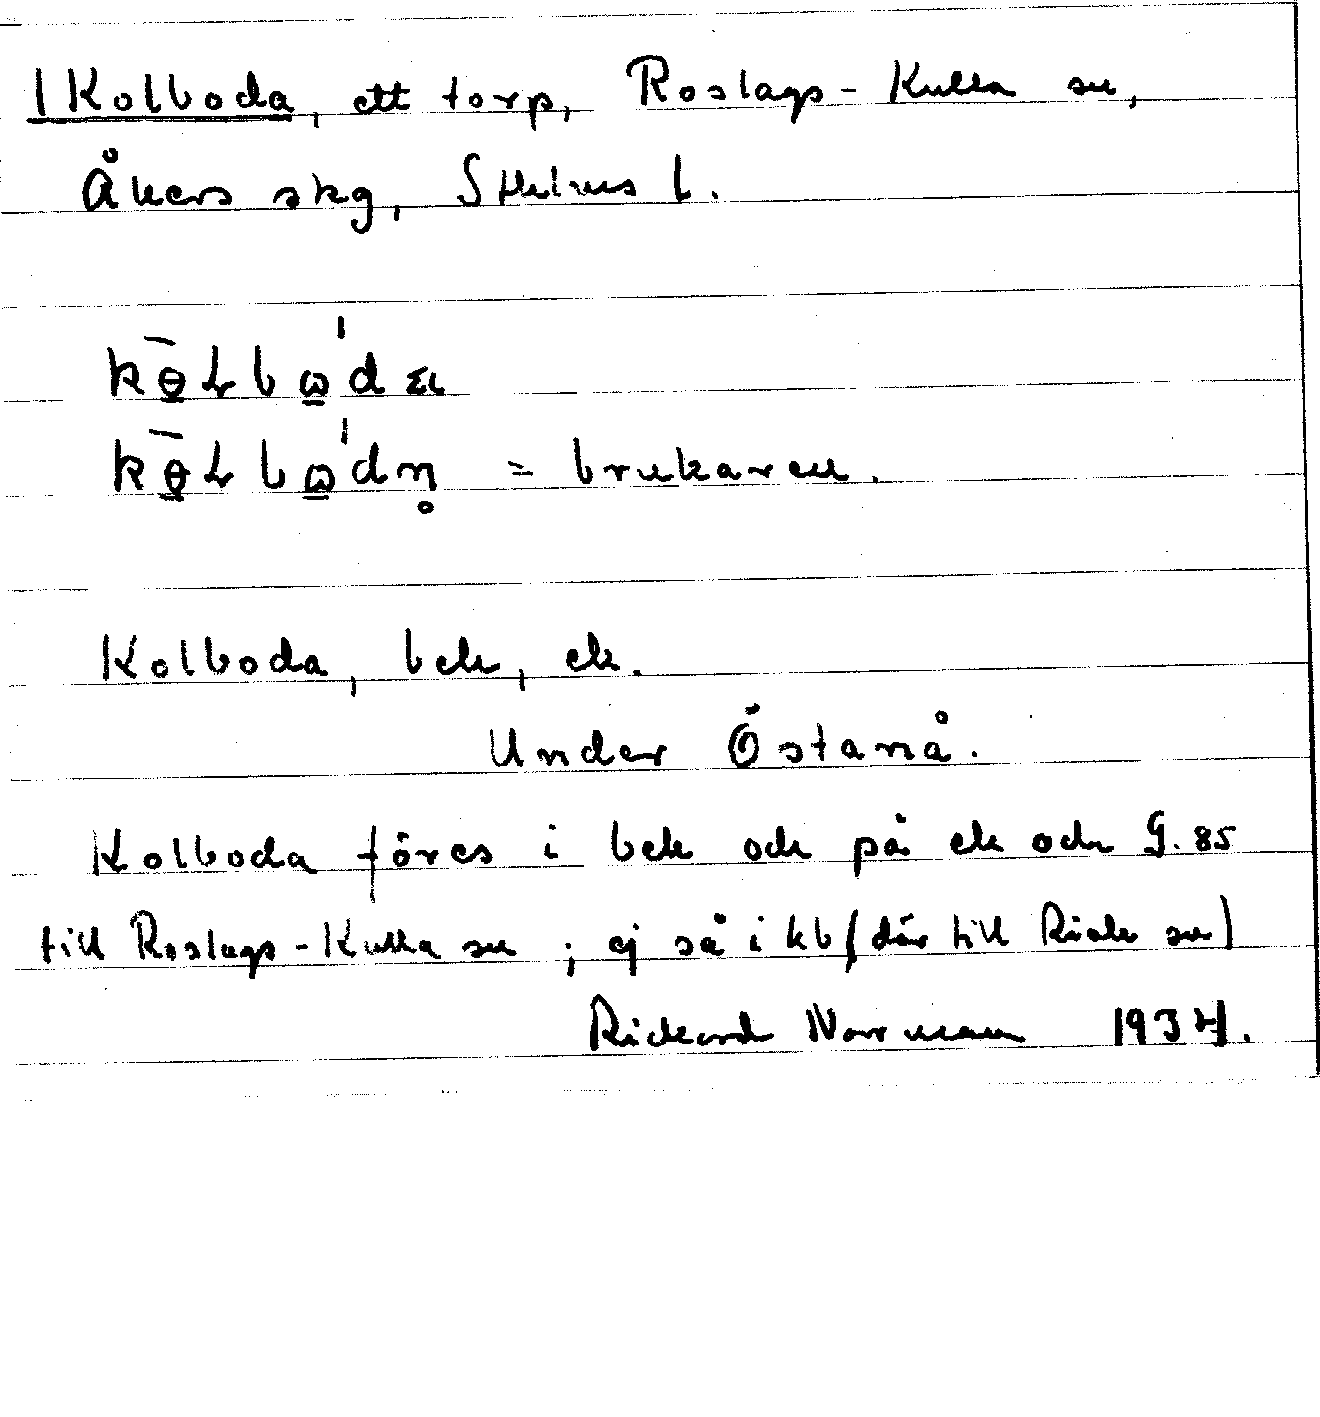 1 Kolboda, ett torp, Roslags-Kulla sn,
Åkers skg, Sthlms l.
kɵ̄Lbɷ'da
kɵ̄Lbɷ'dn̥ = brukaren.
Kolboda, bek, ek.
Under Östanå.
Kolboda föres i bek och på ek och G. 85
till Roslags-Kulla sn ; ej så i kb (där till Riala sn)
Rickard Norrman 1934.